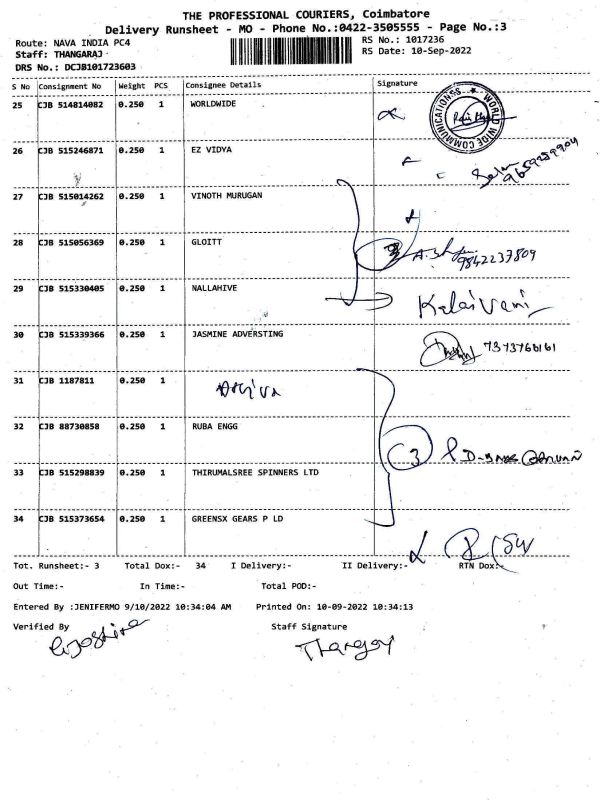 THE PROFESSIONAL COURIERS, Coimbatore
Delivery Runsheet - MO - Phone No.:0422-3505555 - Page No.:3
Route: NAVA INDIA PC4 RS No.: 1017236
Staff: THANGARAJ RS Date: 10-Sep-2022
DRS No.: DCJB101723603
S No Consignment No Weight PCS Consignee Details Signature
25 CJB 514814082 0.250 1 WORLDWIDE
WORLD WIDE COMMUNICATIONSS
26 CJB 515246871 0.250 1 EZ VIDYA
9659289904
27 CJB 515014262 0.250 1 VINOTH MURUGAN
28 CJB 515056369 0.250 1 GLOITT
9842237809
29 CJB 515330405 0.250 1 NALLAHIVE Kalaivani
30 CJB 515339366 0.250 1 JASMINE ADVERSTING 7373766161
31 CJB 1187811 0.250 1
32 CJB 88730858 0.250 1 RUBA ENGG 3
33 CJB 515298839 0.250 1 THIRUMALSREE SPINNERS LTD
34 CJB 515373654 0.250 1 GREENSX GEARS P LD
Tot. Runsheet:- 3 Total Dox:- 34 I Delivery:- II Delivery:- RTN Dox:-
Out Time:- In Time:- Total POD:-
Entered By :JENIFERMO 9/10/2022 10:34:04 AM Printed On: 10-09-2022 10:34:13
Verified By Staff Signature
Thangaraj